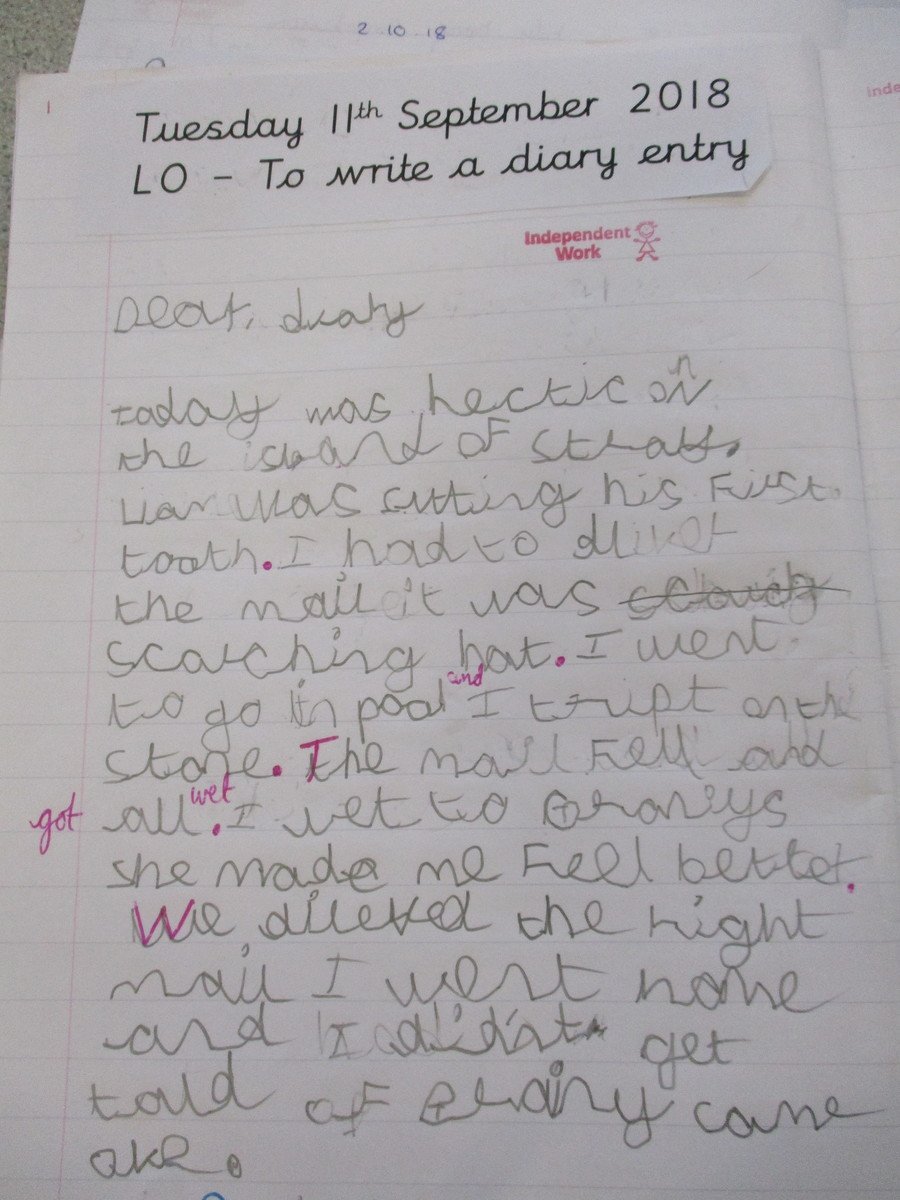 2.10.18
1
Tuesday 11th September 2018
LO - To write a diary entry
inde
Independent
Work
Dear, diary
today was hectic on
the island of Struay.
Liam was cutting his First
tooth. I had to dliver
the mail it was
scorching hot. I went
to go in pool and I tript on the
stone. The mail Fell and
got all wet. I wet to Grannys
she made me Feel better.
We dilered the right
mail I went home
and I didnt get
told of Granny came